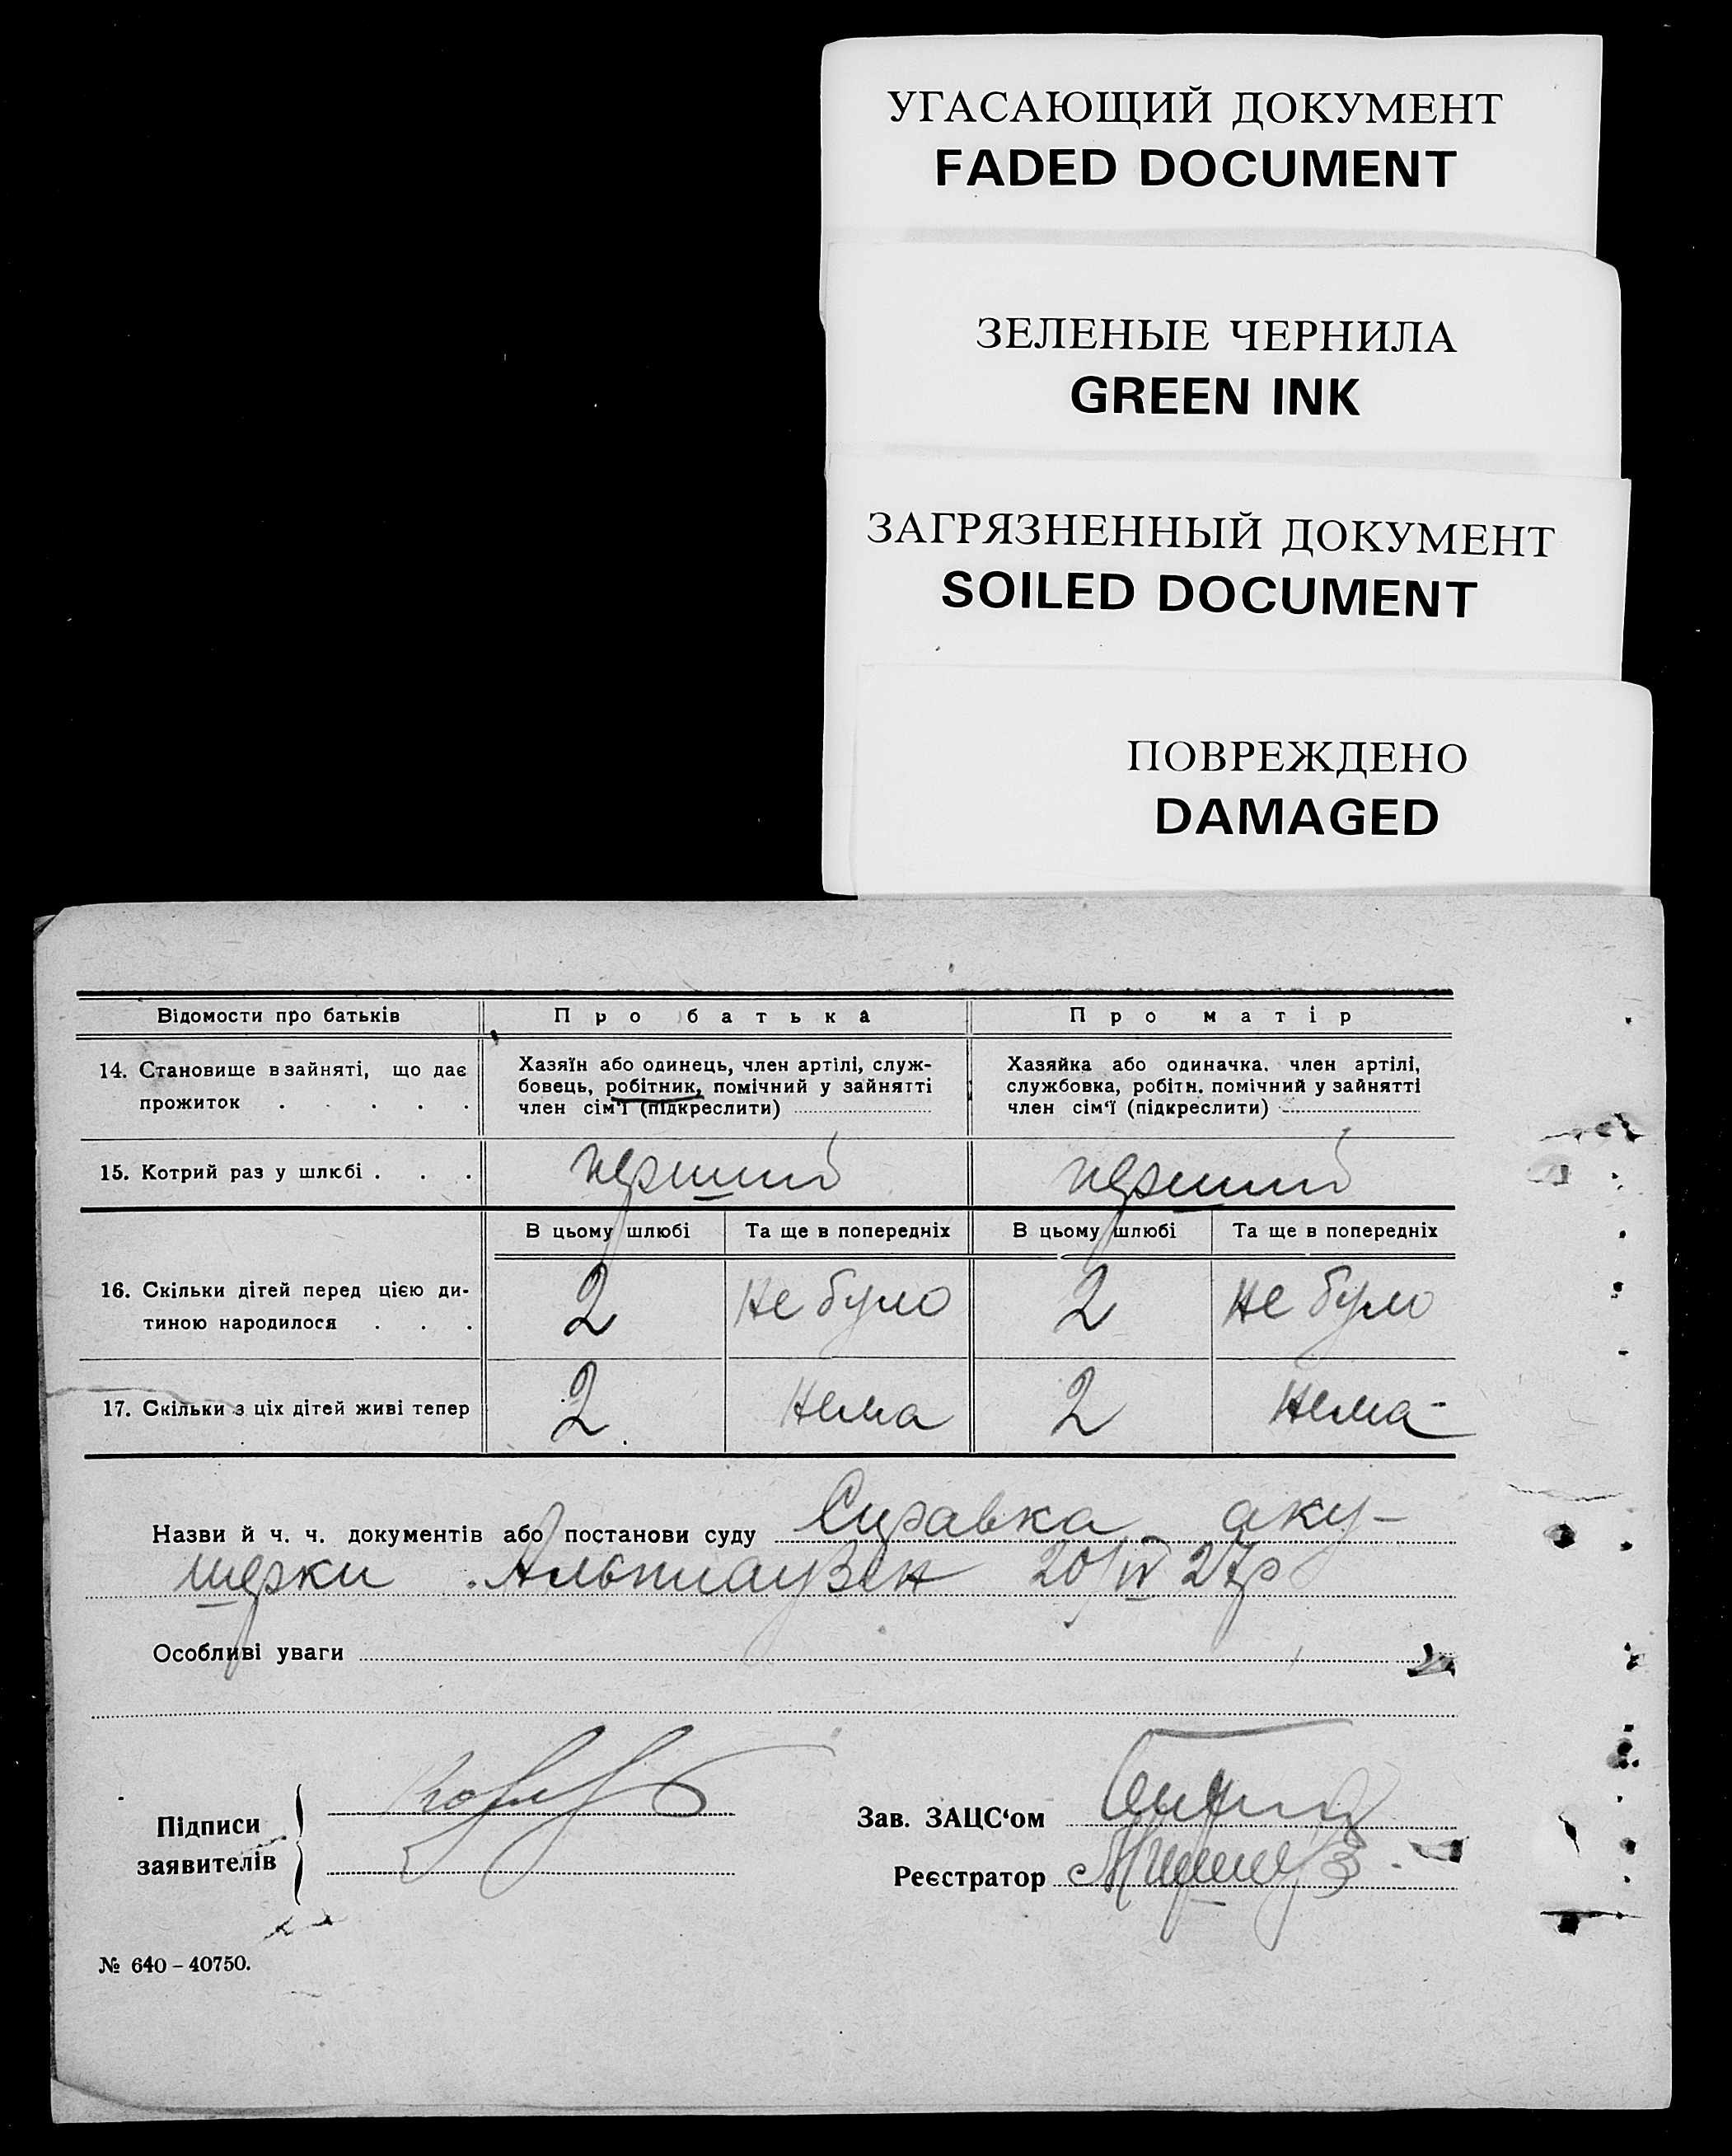 УГАСАЮЩИЙ ДОКУМЕНТ
FADED DOCUMENT
ЗЕЛЕНЫЕ ЧЕРНИЛА
GREEN INK
ЗАГРЯЗНЕННЫЙ ДОКУМЕНТ
SOILED DOCUMENT
ПОВРЕЖДЕНО
DAMAGED
Відомости про батьків Про батька Про матір
14. Становище в зайняті, що дає
прожиток . . . . .
Хазяїн або одинець, член артілі, служ-
бовець, робітник, помічний у зайнятті
член сім'ї (підкреслити)
Хазяйка або одиначка. член артілі,
службовка, робітн. помічний у зайнятті
член сім'ї (підкреслити)
15. Котрий раз у шлюбі . . . перший перший
В цьому шлюбі Та ще в попередніх В цьому шлюбі Та ще в попередніх
16. Скільки дітей перед цією ди-
тиною народилося . . .
2 Не було 2 Не було
17. Скільки з ціх дітей живі тепер 2 Нема 2 Нема
Назви й ч. ч. документів або постанови суду Справка аку-
шерки Альтгаузен 20/IV 27р
Особливі уваги
Підписи
заявителів
Зав. ЗАЦС'ом
Реєстратор
№ 640 – 40750.